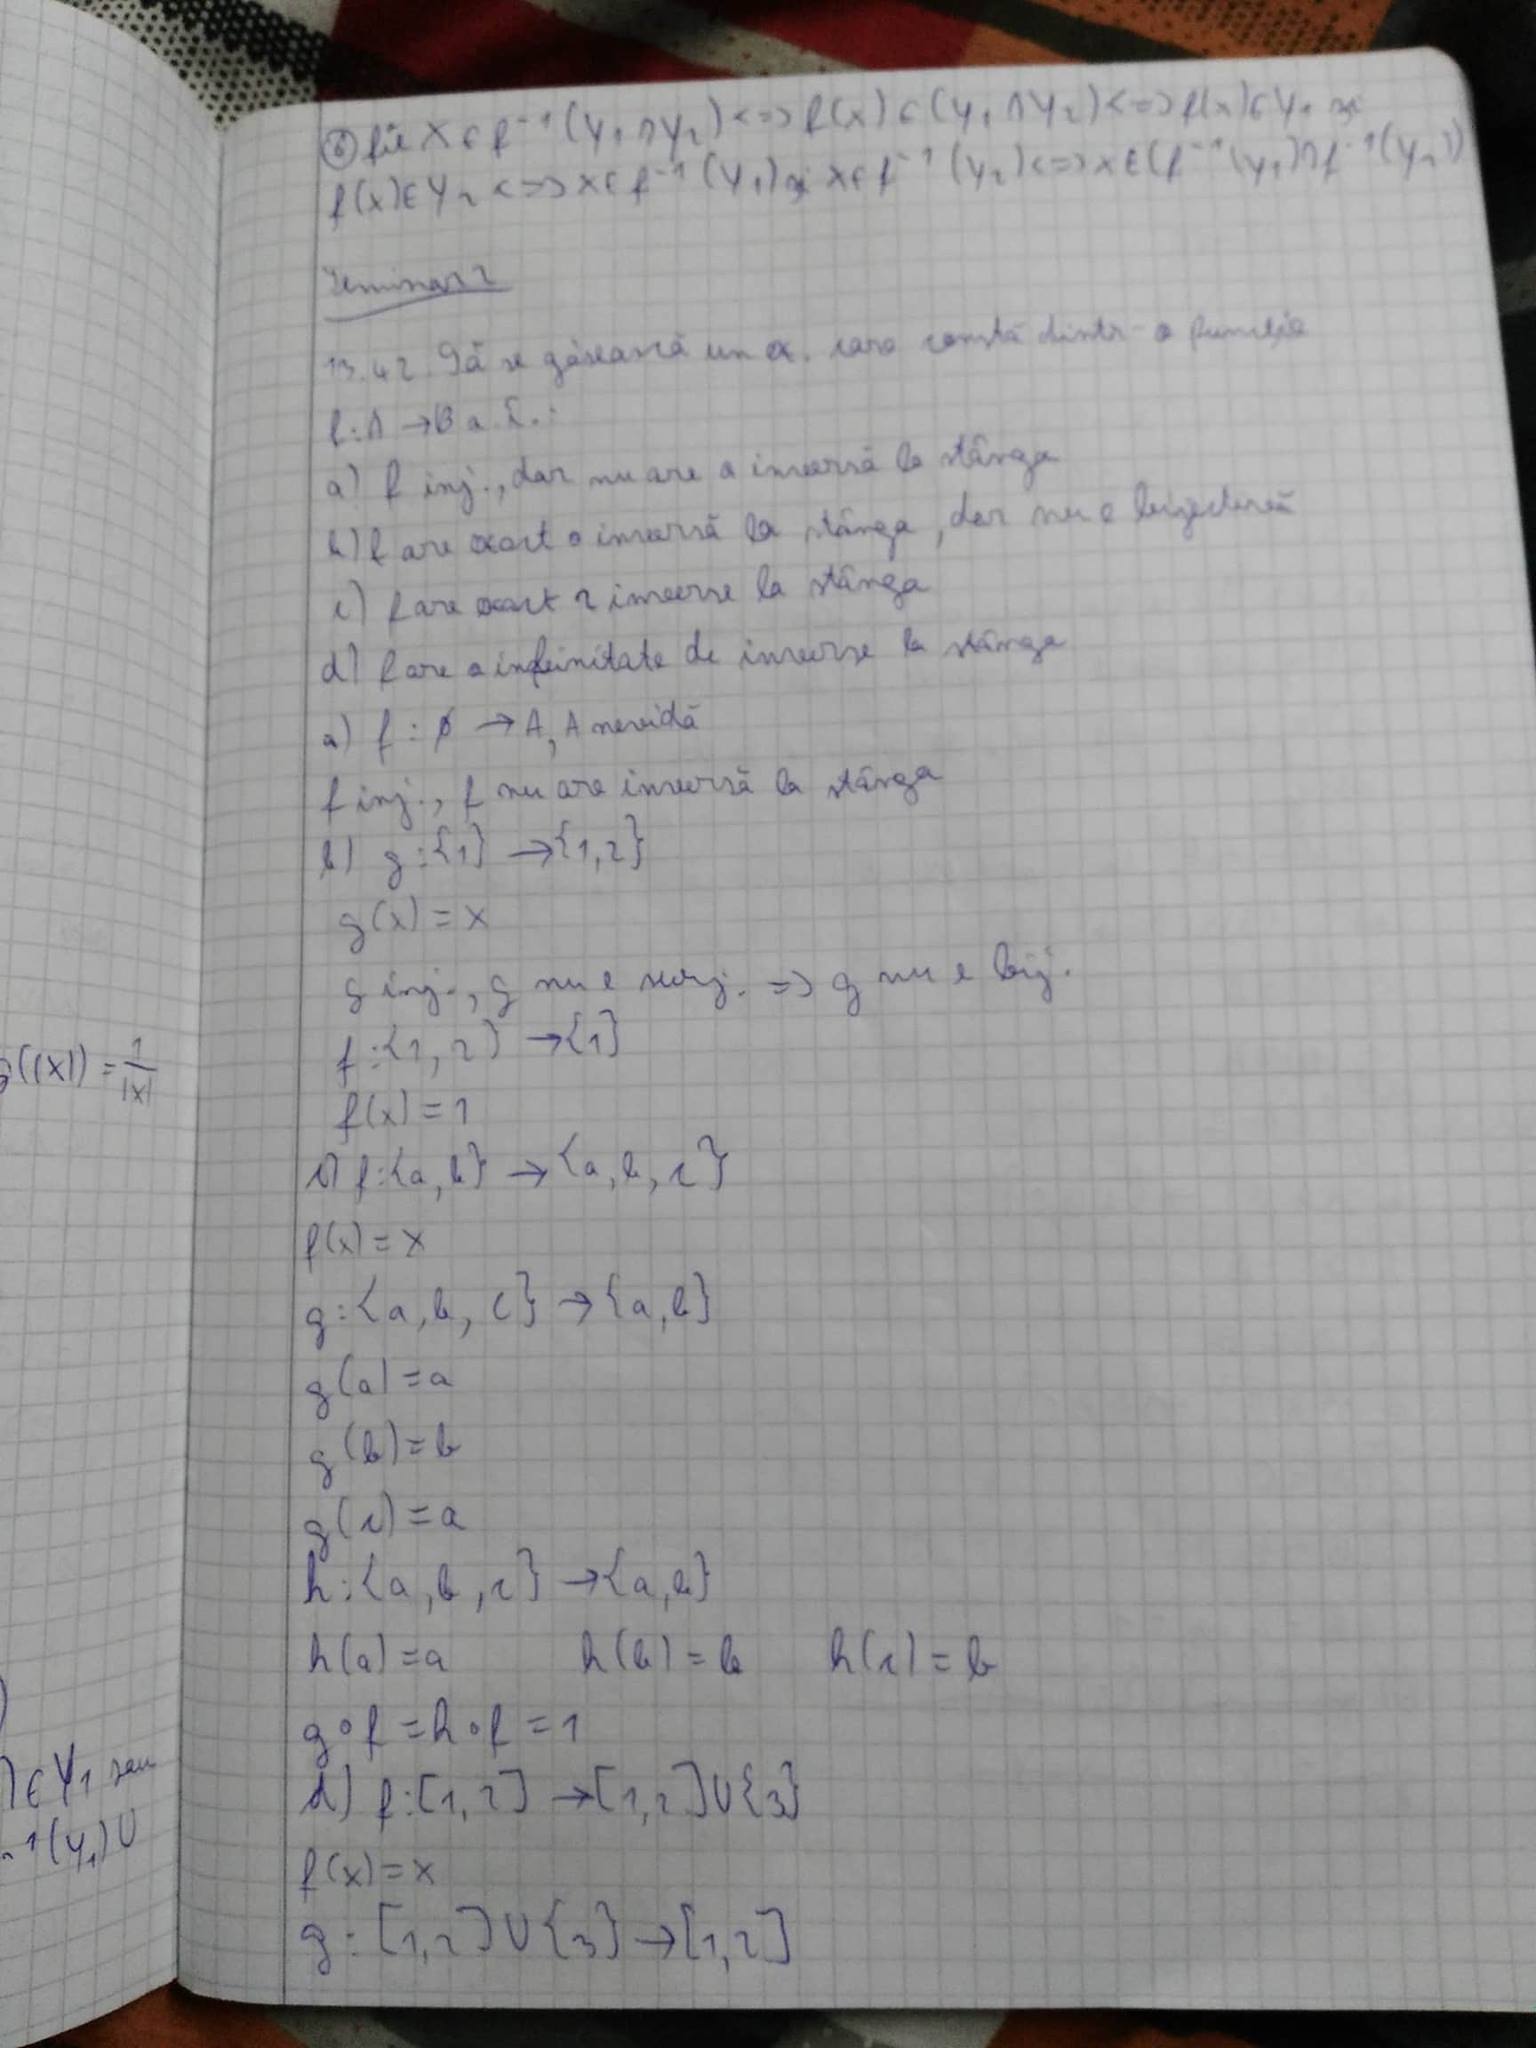 ⑥ fie x ∈ f⁻¹(Y₁∩Y₂) <=> f(x) ∈ (Y₁∩Y₂) <=> f(x) ∈ Y₁ și
f(x) ∈ Y₂ <=> x ∈ f⁻¹(Y₁) și x ∈ f⁻¹(Y₂) <=> x ∈ (f⁻¹(Y₁)∩f⁻¹(Y₂))
Seminar 2
1.3.42. Să se găsească un ex. care constă dintr-o funcție
f: A → B a.î.:
a) f inj., dar nu are o inversă la stânga
b) f are exact o inversă la stânga, dar nu e bijectivă
c) f are exact 2 inverse la stânga
d) f are o infinitate de inverse la stânga
a) f: ∅ → A, A nevidă
f inj., f nu are inversă la stânga
b) g: {1} → {1,2}
g(x) = x
g inj., g nu e surj. => g nu e bij.
f: {1,2} → {1}
f(x) = 1
c) f: {a,b} → {a,b,c}
f(x) = x
g: {a,b,c} → {a,b}
g(a) = a
g(b) = b
g(c) = a
h: {a,b,c} → {a,b}
h(a) = a h(b) = b h(c) = b
g∘f = h∘f = 1
d) f: [1,2] → [1,2]∪{3}
f(x) = x
g: [1,2]∪{3} → [1,2]
g((x)) = 1/|x|
) ∈ Y₁ sau
⁻¹(Y₁) ∪